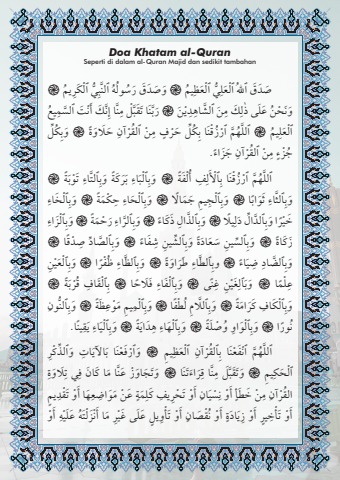 Doa Khatam al-Quran
Seperti di dalam al-Quran Majid dan sedikit tambahan
صَدَقَ اللهُ الْعَلِيُّ الْعَظِيْمُ ۞ وَصَدَقَ رَسُولُهُ النَّبِيُّ الْكَرِيْمُ ۞
وَنَحْنُ عَلَى ذَلِكَ مِنَ الشَّاهِدِيْنَ ۞ رَبَّنَا تَقَبَّلْ مِنَّا إِنَّكَ أَنْتَ السَّمِيْعُ
الْعَلِيْمُ ۞ اَللَّهُمَّ ارْزُقْنَا بِكُلِّ حَرْفٍ مِنَ الْقُرْآنِ حَلَاوَةً ۞ وَبِكُلِّ
جُزْءٍ مِنَ الْقُرْآنِ جَزَاءً.
اَللَّهُمَّ ارْزُقْنَا بِالْأَلِفِ أُلْفَةً ۞ وَبِالْبَاءِ بَرَكَةً ۞ وَبِالتَّاءِ تَوْبَةً ۞
وَبِالثَّاءِ ثَوَابًا ۞ وَبِالْجِيمِ جَمَالًا ۞ وَبِالْحَاءِ حِكْمَةً ۞ وَبِالْخَاءِ
خَيْرًا وَبِالدَّالِ دَلِيلًا ۞ وَبِالذَّالِ ذَكَاءً ۞ وَبِالرَّاءِ رَحْمَةً ۞ وَبِالزَاءِ
زَكَاةً ۞ وَبِالسِّينِ سَعَادَةً وَبِالشِّينِ شِفَاءً ۞ وَبِالصَّادِ صِدْقًا ۞
وَبِالضَّادِ ضِيَاءً ۞ وَبِالطَّاءِ طَرَاوَةً ۞ وَبِالظَّاءِ ظَفْرًا ۞ وَبِالْعَيْنِ
عِلْمًا ۞ وَبِالْغَيْنِ غِنًى ۞ وَبِالْفَاءِ فَلَاحًا ۞ بِالْقَافِ قُرْبَةً ۞
وَبِالْكَافِ كَرَامَةً ۞ وَبِاللَّامِ لُطْفًا ۞ وَبِالْمِيمِ مَوْعِظَةً ۞ وَبِالنُّونِ
نُورًا ۞ وَبِالْوَاوِ وُصْلَةً ۞ وَبِالْهَاءِ هِدَايَةً ۞ وَبِالْيَاءِ يَقِينًا.
اَللَّهُمَّ انْفَعْنَا بِالْقُرْآنِ الْعَظِيْمِ ۞ وَارْفَعْنَا بِالْآيَاتِ وَالذِّكْرِ
الْحَكِيْمِ ۞ وَتَقَبَّلْ مِنَّا قِرَاءَتَنَا ۞ وَتَجَاوَزْ عَنَّا مَا كَانَ فِي تِلَاوَةِ
الْقُرْآنِ مِنْ خَطَإٍ أَوْ نِسْيَانٍ أَوْ تَحْرِيفِ كَلِمَةٍ عَنْ مَوَاضِعِهَا أَوْ تَقْدِيمٍ
أَوْ تَأْخِيرٍ أَوْ زِيَادَةٍ أَوْ نُقْصَانٍ أَوْ تَأْوِيلٍ عَلَى غَيْرِ مَا أَنْزَلْتَهُ عَلَيْهِ أَوْ